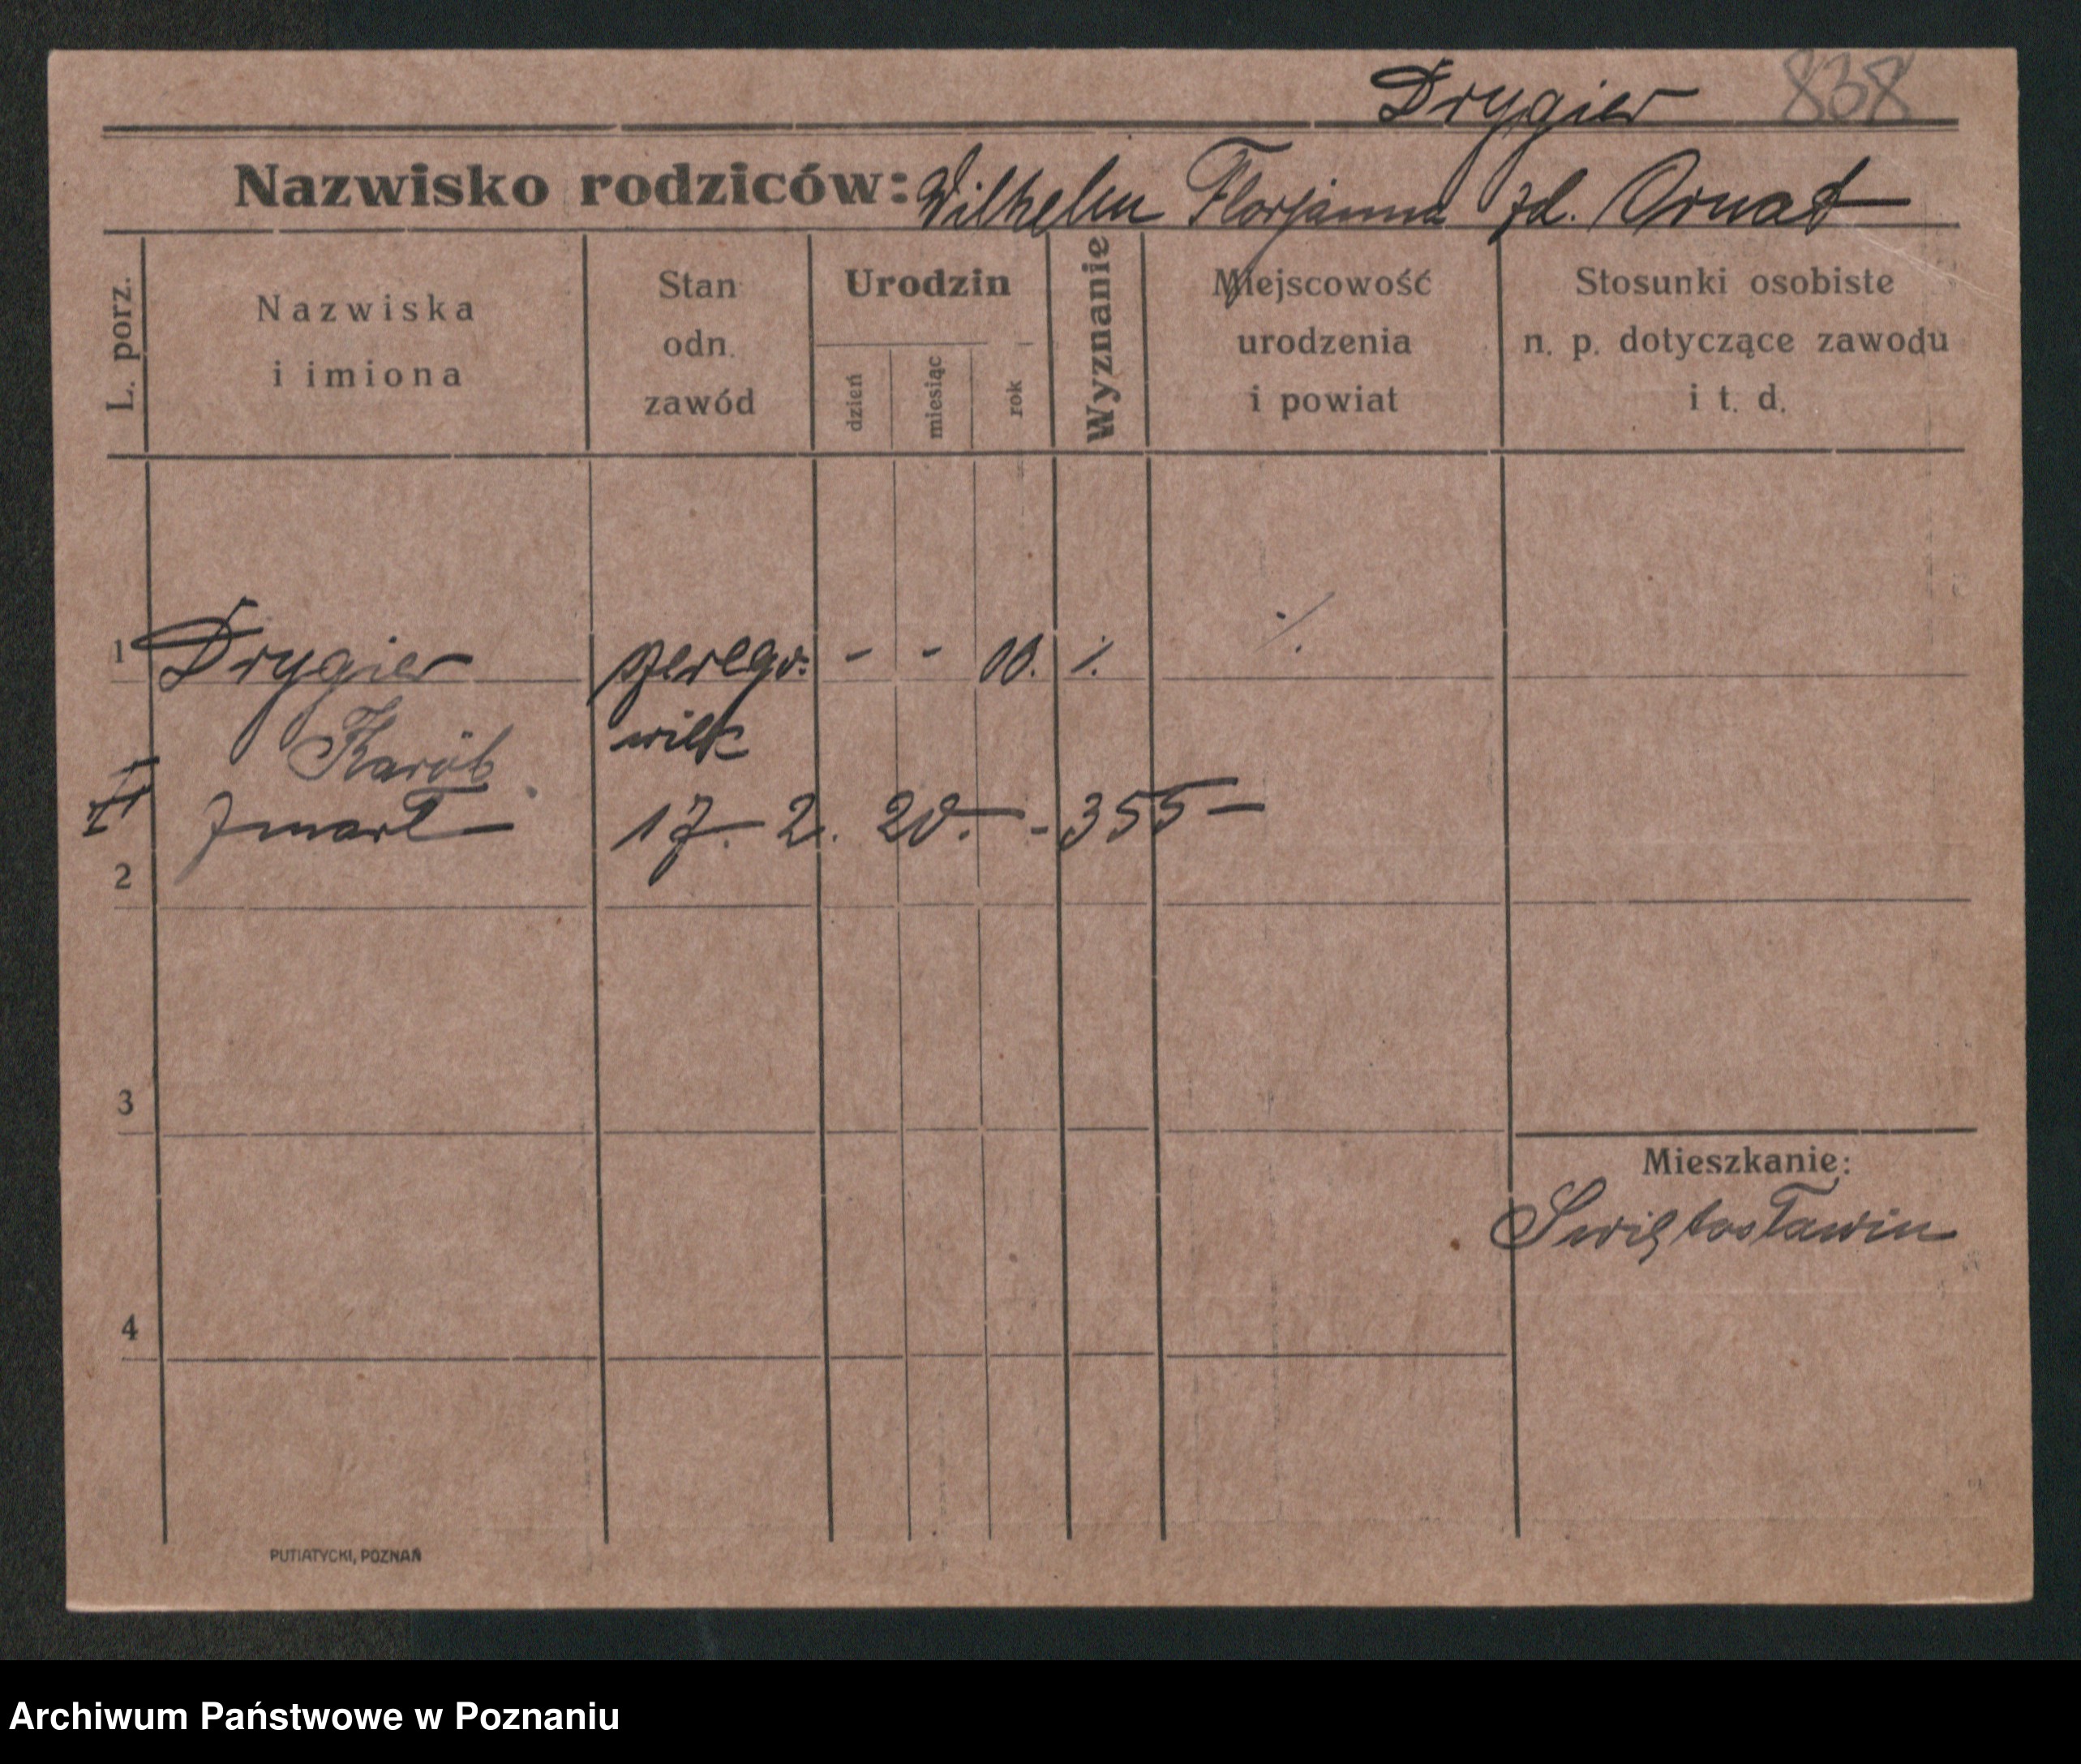 Drygier 838
Nazwisko rodziców: Wilhelm Florjanna zd. Ornat
L. porz.
Nazwiska
i imiona
Stan
odn.
zawód
Urodzin
dzień
miesiąc
rok
Wyznanie
Miejscowość
urodzenia
i powiat
Stosunki osobiste
n. p. dotyczące zawodu
i t. d.
1 Drygier szerego. - - 00. ./.
Karól wilk
zmarł 17. 2. 20. - 355 -
2
3
Mieszkanie:
Swiętosławin
4
PUTIATYCKI, POZNAŃ
Archiwum Państwowe w Poznaniu